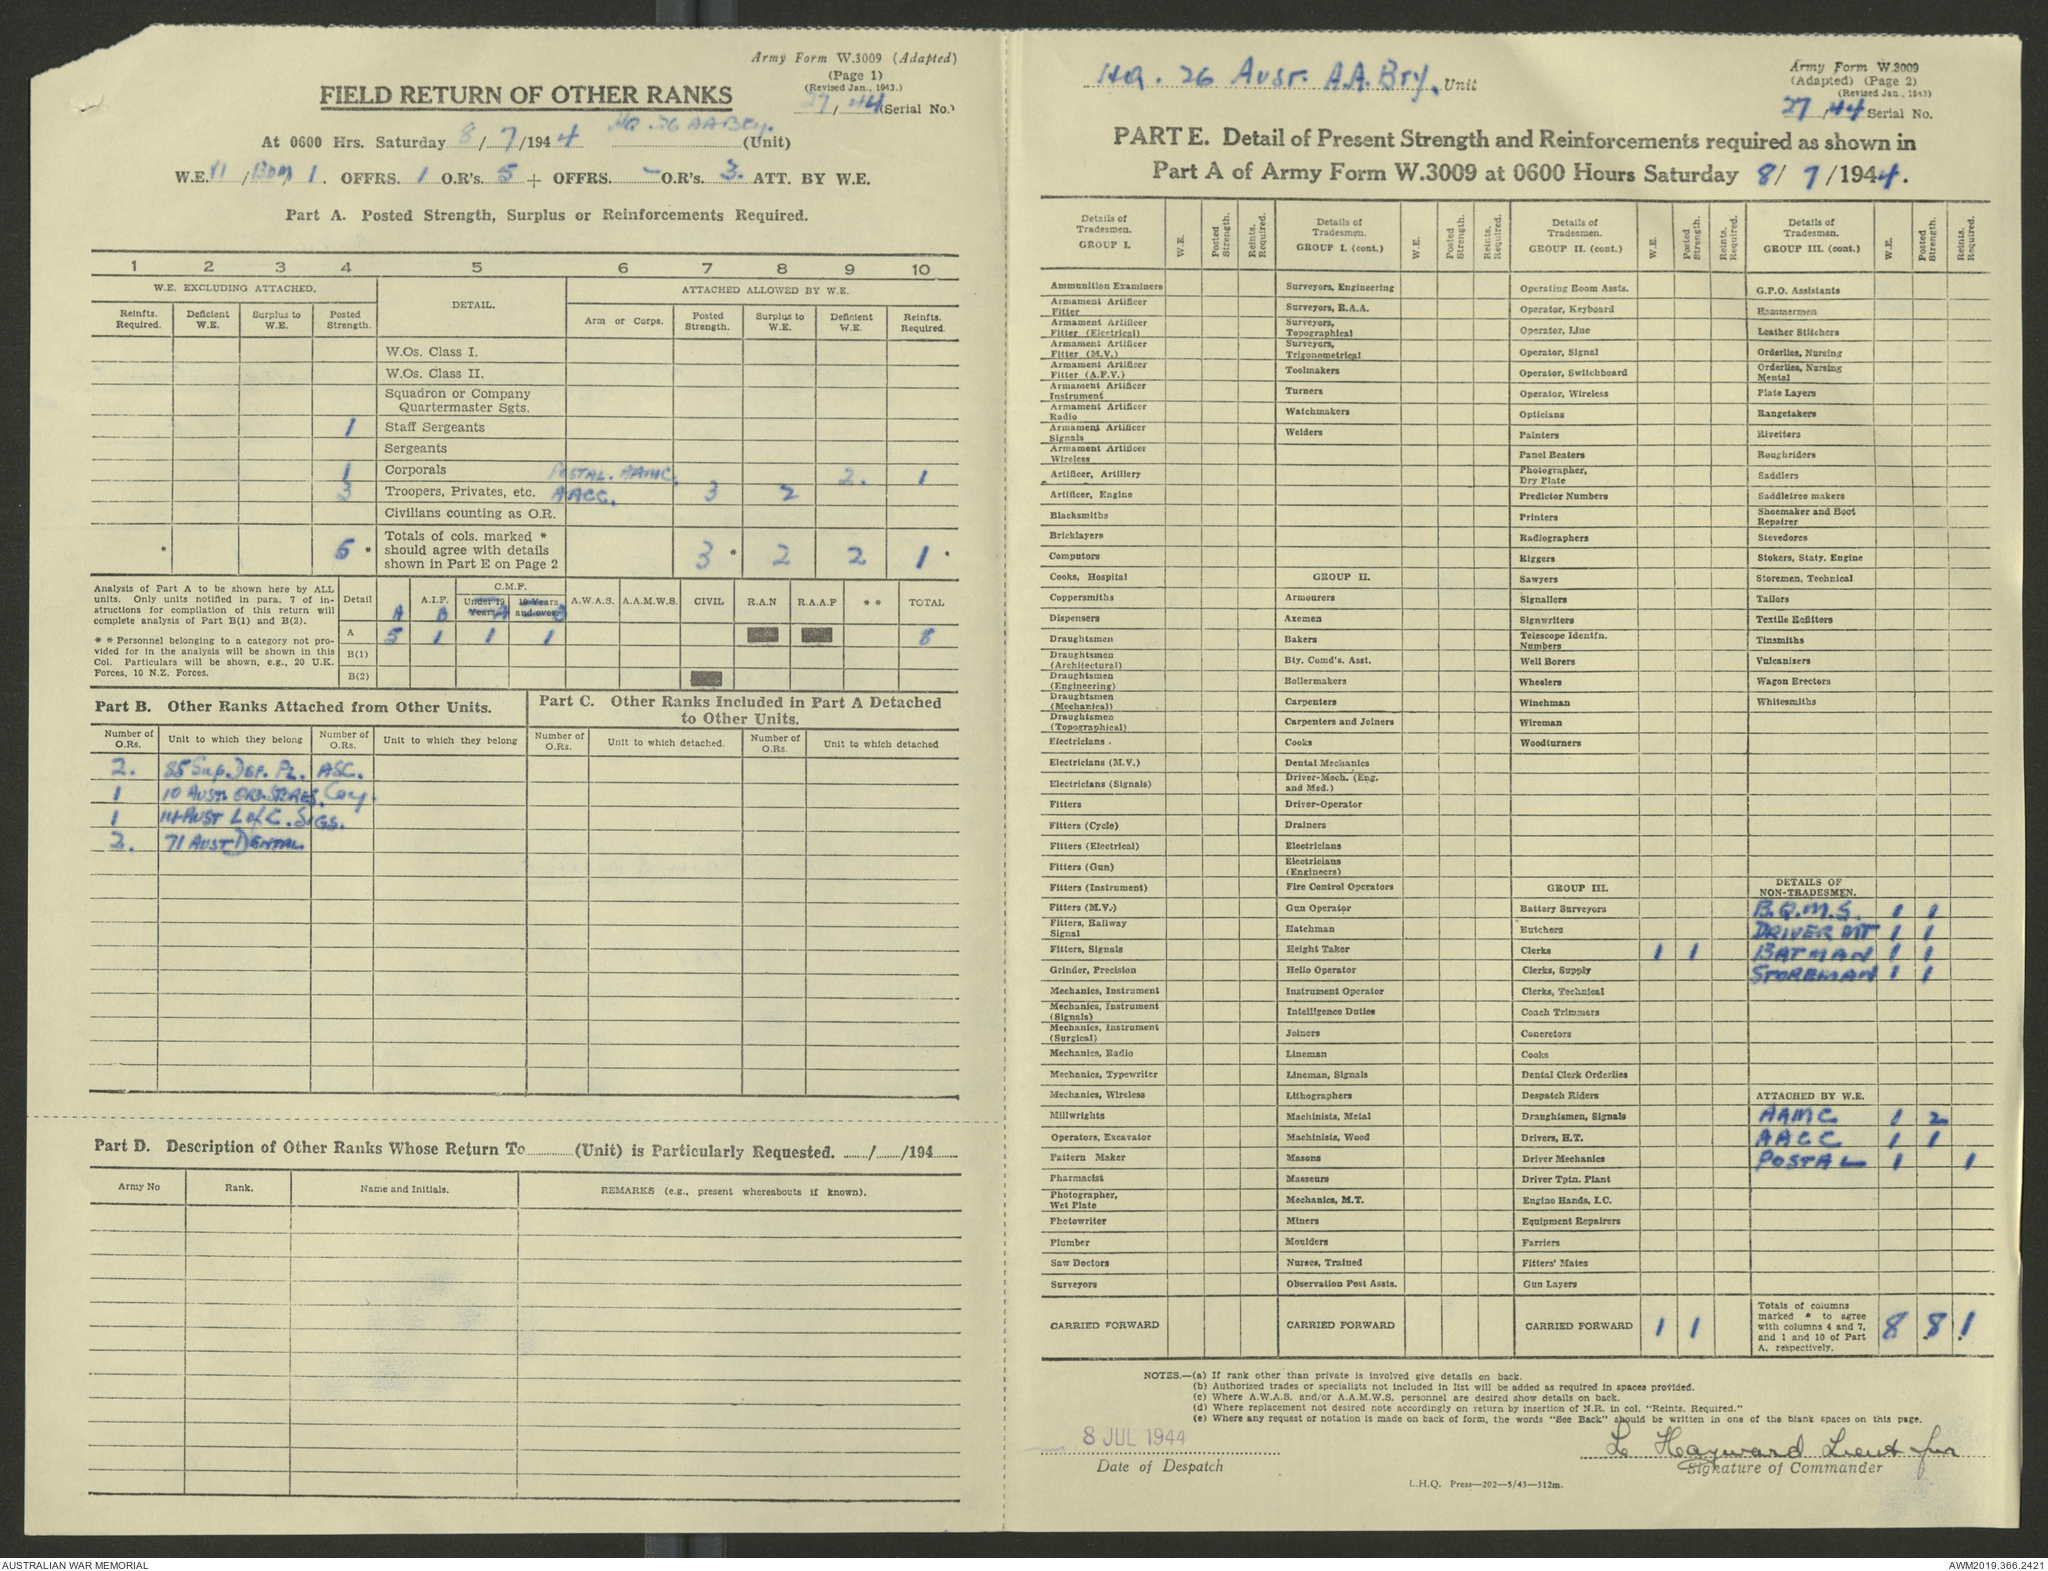 Army Form W.3009 (Adapted)
(Page 1)
(Revised Jan., 1943.)
27/44 (Serial No.)
FIELD RETURN OF OTHER RANKS
At 0600 Hrs. Saturday 8/7/1944 HQ. 26 AA Bty. (Unit)
W.E. /1. OFFRS. 1 O.R's. 5 + OFFRS. - O.R's. 3. ATT. BY W.E.
Part A. Posted Strength, Surplus or Reinforcements Required.
1 2 3 4 5 6 7 8 9 10
W.E. EXCLUDING ATTACHED. DETAIL. ATTACHED ALLOWED BY W.E.
Reinfts. Required. Deficient W.E. Surplus to W.E. Posted Strength. Arm or Corps. Posted Strength. Surplus to W.E. Deficient W.E. Reinfts. Required.
W.Os. Class I.
W.Os. Class II.
Squadron or Company Quartermaster Sgts.
1 Staff Sergeants
Sergeants
1 Corporals POSTAL. AAMC. 2. 1
3 Troopers, Privates, etc. AACC. 3 2
Civilians counting as O.R.
* 5 * Totals of cols. marked * should agree with details shown in Part E on Page 2 3 * 2 2 1 *
Analysis of Part A to be shown here by ALL units. Only units notified in para. 7 of instructions for compilation of this return will complete analysis of Part B(1) and B(2).
* * Personnel belonging to a category not provided for in the analysis will be shown in this Col. Particulars will be shown, e.g., 20 U.K. Forces, 10 N.Z. Forces.
Detail A.I.F. C.M.F. Under 19 Years. 19 Years and over. A.W.A.S. A.A.M.W.S. CIVIL R.A.N R.A.A.F * * TOTAL
A B A B
A 5 1 1 1 8
B(1)
B(2)
Part B. Other Ranks Attached from Other Units.
Part C. Other Ranks Included in Part A Detached to Other Units.
Number of O.Rs. Unit to which they belong Number of O.Rs. Unit to which they belong Number of O.Rs. Unit to which detached. Number of O.Rs. Unit to which detached
2. 85 Sup. Dep. Pl. ASC.
1 10 Aust. Ord. Stores. Coy.
1 14 Aust L of C. Sigs.
2. 71 Aust Dental
Part D. Description of Other Ranks Whose Return To (Unit) is Particularly Requested. / /194
Army No Rank. Name and Initials. REMARKS (e.g., present whereabouts if known).
HQ. 26 Aust. A.A. Bty. Unit
Army Form W.3009
(Adapted) (Page 2)
(Revised Jan., 1943)
27/44 Serial No.
PART E. Detail of Present Strength and Reinforcements required as shown in
Part A of Army Form W.3009 at 0600 Hours Saturday 8/7/1944.
Details of Tradesmen. GROUP I. W.E. Posted Strength. Reints. Required.
Ammunition Examiners
Armament Artificer Fitter
Armament Artificer Fitter (Electrical)
Armament Artificer Fitter (M.V.)
Armament Artificer Fitter (A.F.V.)
Armament Artificer Instrument
Armament Artificer Radio
Armament Artificer Signals
Armament Artificer Wireless
Artificer, Artillery
Artificer, Engine
Blacksmiths
Bricklayers
Computors
Cooks, Hospital
Coppersmiths
Dispensers
Draughtsmen
Draughtsmen (Architectural)
Draughtsmen (Engineering)
Draughtsmen (Mechanical)
Draughtsmen (Topographical)
Electricians .
Electricians (M.V.)
Electricians (Signals)
Fitters
Fitters (Cycle)
Fitters (Electrical)
Fitters (Gun)
Fitters (Instrument)
Fitters (M.V.)
Fitters, Railway Signal
Fitters, Signals
Grinder, Precision
Mechanics, Instrument
Mechanics, Instrument (Signals)
Mechanics, Instrument (Surgical)
Mechanics, Radio
Mechanics, Typewriter
Mechanics, Wireless
Millwrights
Operators, Excavator
Pattern Maker
Pharmacist
Photographer, Wet Plate
Photowriter
Plumber
Saw Doctors
Surveyors
CARRIED FORWARD
Details of Tradesmen. GROUP I. (cont.) W.E. Posted Strength. Reints. Required.
Surveyors, Engineering
Surveyors, R.A.A.
Surveyors, Topographical
Surveyors, Trigonometrical
Toolmakers
Turners
Watchmakers
Welders
GROUP II.
Armourers
Axemen
Bakers
Bty. Comd's. Asst.
Boilermakers
Carpenters
Carpenters and Joiners
Cooks
Dental Mechanics
Driver-Mech. (Eng. and Med.)
Driver-Operator
Drainers
Electricians
Electricians (Engineers)
Fire Control Operators
Gun Operator
Hatchman
Height Taker
Hello Operator
Instrument Operator
Intelligence Duties
Joiners
Lineman
Lineman, Signals
Lithographers
Machinists, Metal
Machinists, Wood
Masons
Masseurs
Mechanics, M.T.
Miners
Moulders
Nurses, Trained
Observation Post Assts.
CARRIED FORWARD
Details of Tradesmen. GROUP II. (cont.) W.E. Posted Strength. Reints. Required.
Operating Room Assts.
Operator, Keyboard
Operator, Line
Operator, Signal
Operator, Switchboard
Operator, Wireless
Opticians
Painters
Panel Beaters
Photographer, Dry Plate
Predictor Numbers
Printers
Radiographers
Riggers
Sawyers
Signallers
Signwriters
Telescope Identfn. Numbers
Well Borers
Wheelers
Winchman
Wireman
Woodturners
GROUP III.
Battery Surveyors
Butchers
Clerks 1 1
Clerks, Supply
Clerks, Technical
Coach Trimmers
Concretors
Cooks
Dental Clerk Orderlies
Despatch Riders
Draughtsmen, Signals
Drivers, H.T.
Driver Mechanics
Driver Tptn. Plant
Engine Hands, I.C.
Equipment Repairers
Farriers
Fitters' Mates
Gun Layers
CARRIED FORWARD 1 1
Details of Tradesmen. GROUP III. (cont.) W.E. Posted Strength. Reints. Required.
G.P.O. Assistants
Hammermen
Leather Stitchers
Orderlies, Nursing
Orderlies, Nursing Mental
Plate Layers
Rangetakers
Rivetters
Roughriders
Saddlers
Saddletree makers
Shoemaker and Boot Repairer
Stevedores
Stokers, Staty. Engine
Storemen, Technical
Tailors
Textile Refitters
Tinsmiths
Vulcanizers
Wagon Erectors
Whitesmiths
DETAILS OF NON-TRADESMEN.
B.Q.M.S. 1 1
DRIVER MT 1 1
BATMAN 1 1
STOREMAN 1 1
ATTACHED BY W.E.
AAMC 1 2
AACC 1 1
POSTAL 1 1
Totals of columns marked * to agree with columns 4 and 7, and 1 and 10 of Part A. respectively. 8 8 1
NOTES.—(a) If rank other than private is involved give details on back.
(b) Authorised trades or specialists not included in list will be added as required in spaces provided.
(c) Where A.W.A.S. and/or A.A.M.W.S. personnel are desired show details on back.
(d) Where replacement not desired note accordingly on return by insertion of N.R. in col. "Reints. Required."
(e) Where any request or notation is made on back of form, the words "See Back" should be written in one of the blank spaces on this page.
8 JUL 1944
Date of Despatch
L Hayward Lieut for
Signature of Commander
L.H.Q. Press—202—5/43—312m.
AUSTRALIAN WAR MEMORIAL
AWM2019.366.2421